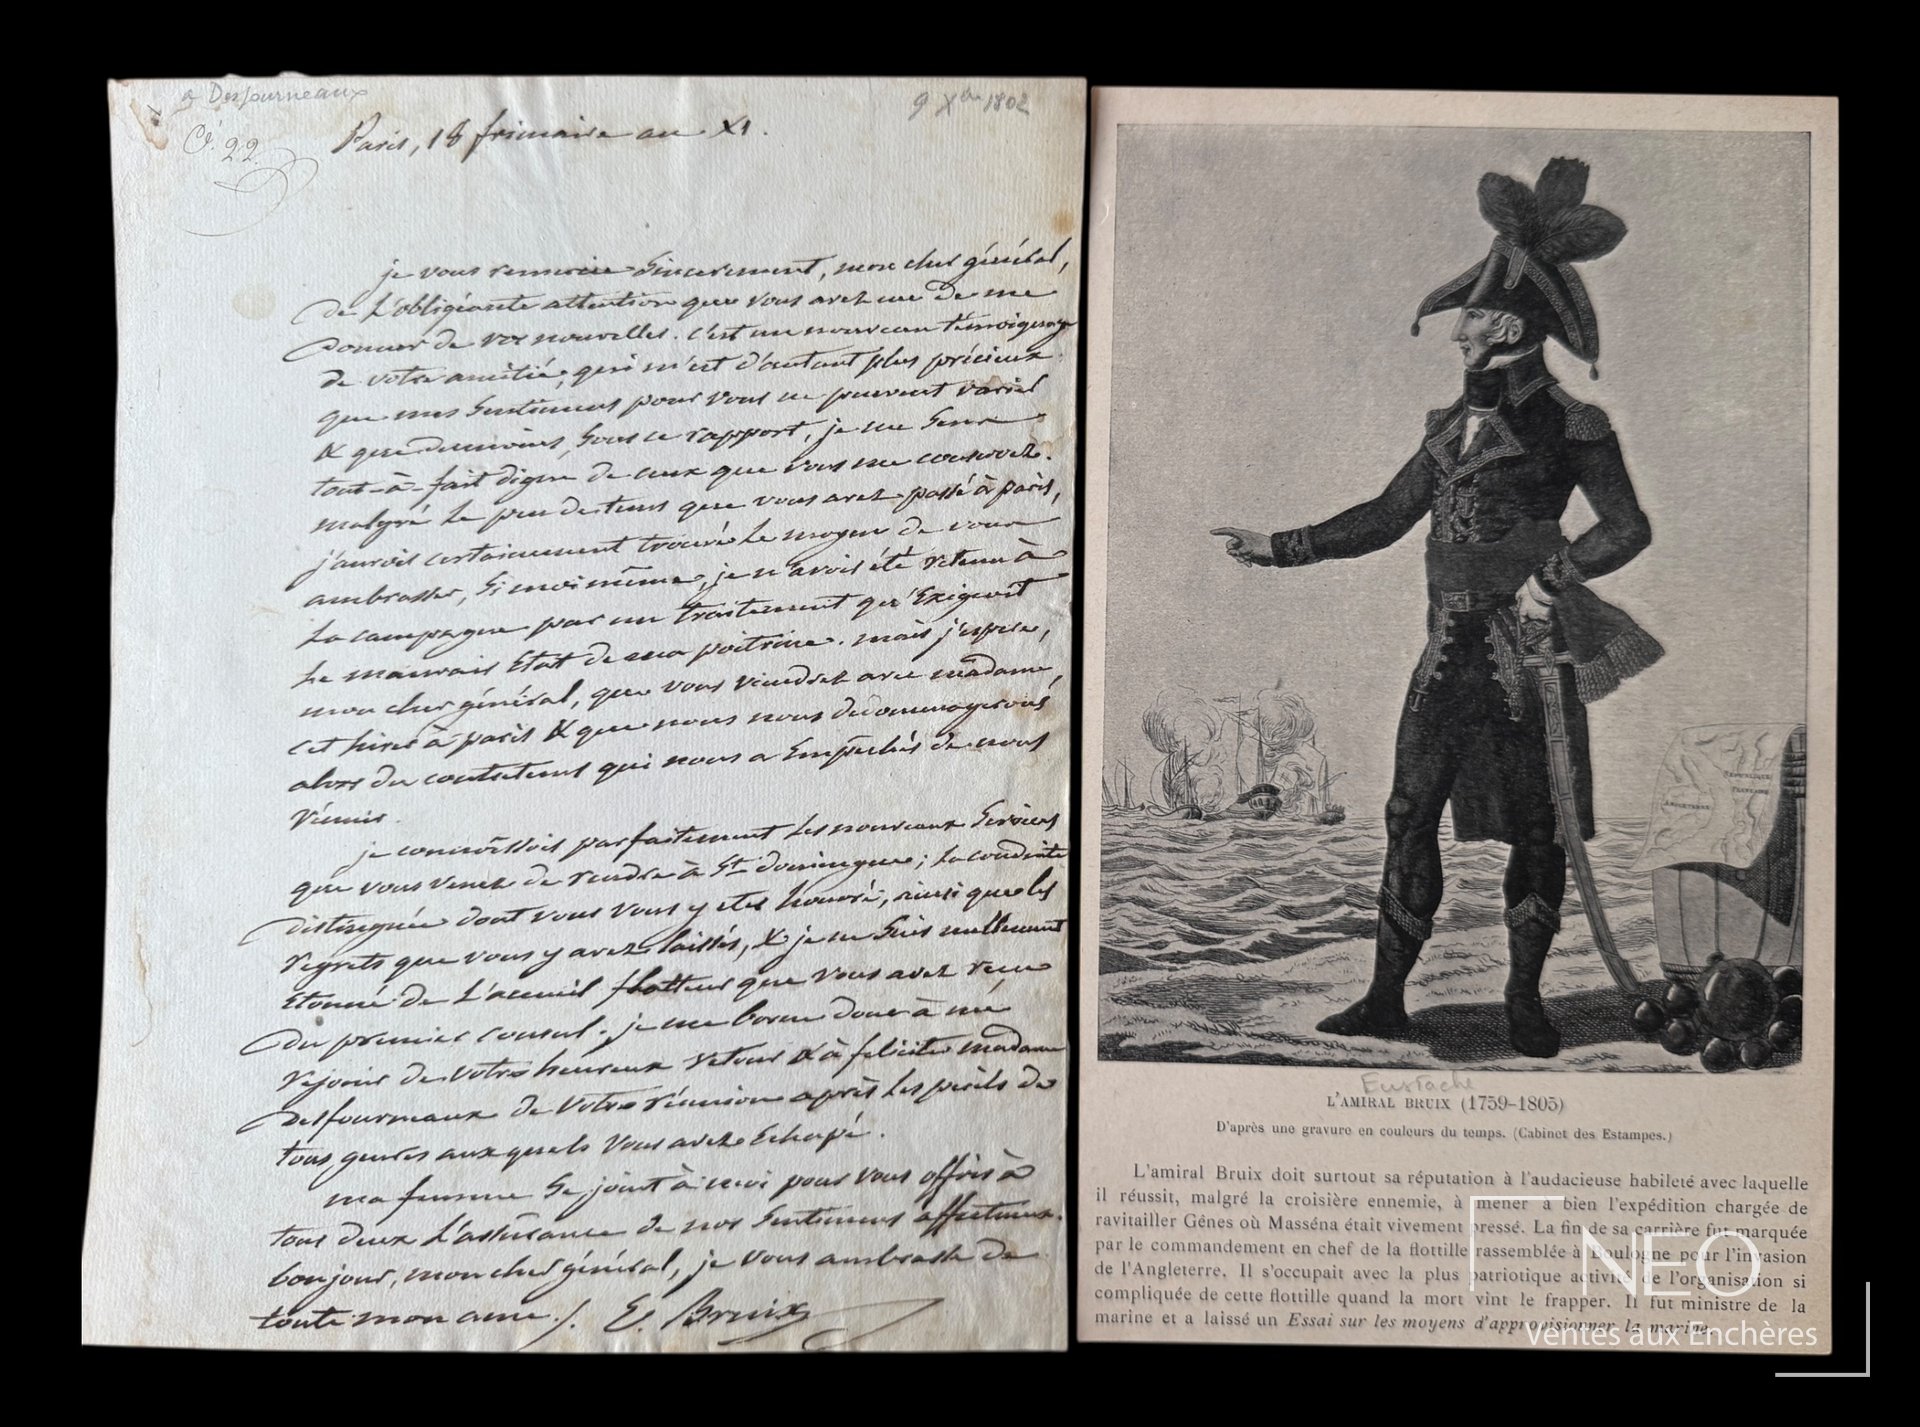 a Desfourneaux
9 Xbre 1802
Paris, 18 frimaire an XI.
je vous remercie sincerement, mon cher général,
de L'obligeante attention que vous avez eue de me
donner de vos nouvelles. c'est un nouveau témoignage
de votre amitié, qui m'est d'autant plus précieux
que mes sentimens pour vous ne peuvent varier
& que du moins, sous ce rapport, je me sens
tout-à-fait digne de ceux que vous me conservez.
malgré le peu de tems que vous avez passé à paris,
j'aurois certainement trouvé le moyen de vous
embrasser, si moi même, je n'avois été retenu à
la campagne par un traitement qu'Exigeoit
le mauvais Etat de ma poitrine. mais j'espère,
mon cher général, que vous viendrez avec madame,
cet hiver à paris & que nous nous dédomagerons
alors du contretems qui nous a Empêchés de nous
réunir.
je connoissois parfaitement les nouveaux services
que vous venez de rendre à St. domingue; la conduite
distinguée dont vous vous y etes honoré, ainsi que les
regrets que vous y avez laissés, & je ne suis nullement
étonné de L'accueil flatteur que vous avez reçu
du premier consul. je me borne donc à me
réjouir de votre heureux retour & à feliciter madame
desfourneaux de votre réunion après les périls de
tous genres aux quels vous avez Echapé.
ma femme se joint à moi pour vous offrir à
tous deux L'assurance de nos sentimens affectueux.
bonjour, mon cher général, je vous embrasse de
toute mon ame ./. E. Bruix
RÉPUBLIQUE
FRANÇAISE
ANGLETERRE
Eustache
L'AMIRAL BRUIX (1759-1805)
D'après une gravure en couleurs du temps. (Cabinet des Estampes.)
L'amiral Bruix doit surtout sa réputation à l'audacieuse habileté avec laquelle
il réussit, malgré la croisière ennemie, à mener à bien l'expédition chargée de
ravitailler Gênes où Masséna était vivement pressé. La fin de sa carrière fut marquée
par le commandement en chef de la flottille rassemblée à Boulogne pour l'invasion
de l'Angleterre. Il s'occupait avec la plus patriotique activité de l'organisation si
compliquée de cette flottille quand la mort vint le frapper. Il fut ministre de la
marine et a laissé un Essai sur les moyens d'approvisionner la marine.
NEO
Ventes aux Enchères